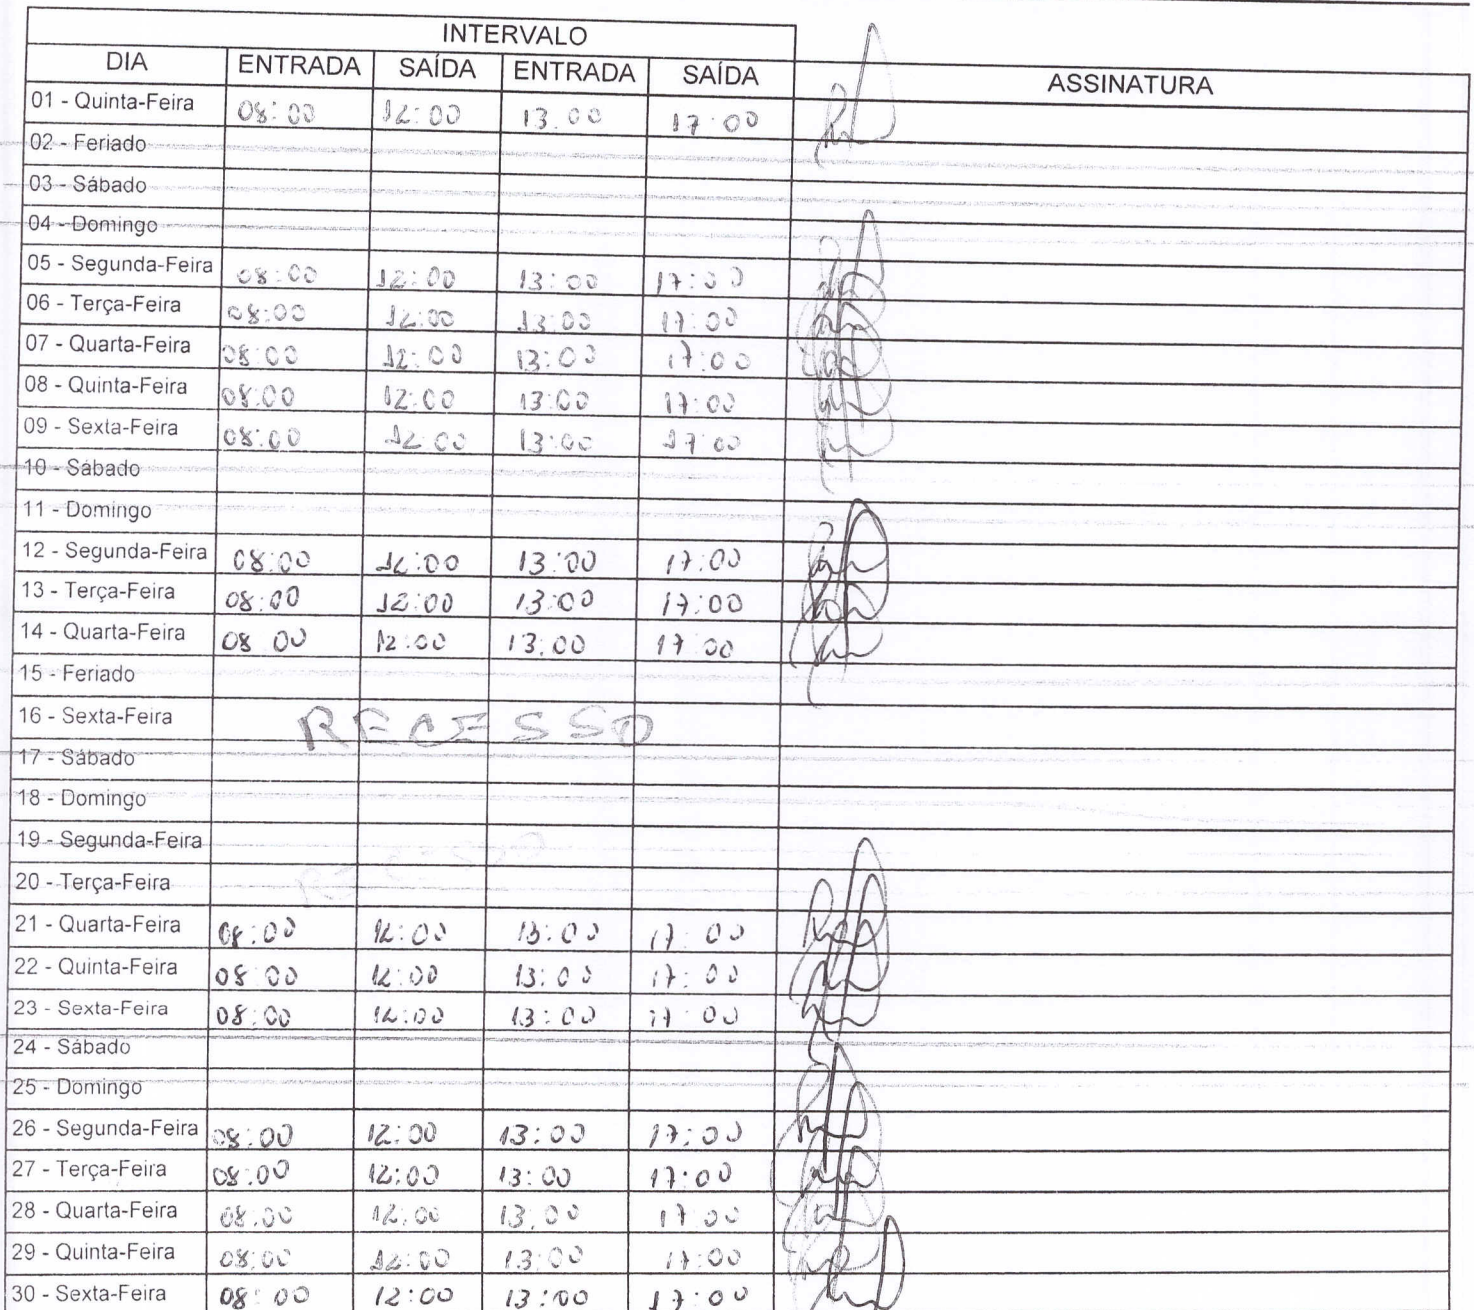 INTERVALO
DIA ENTRADA SAÍDA ENTRADA SAÍDA ASSINATURA
01 - Quinta-Feira 08:00 12:00 13:00 17:00
02 - Feriado
03 - Sábado
04 - Domingo
05 - Segunda-Feira 08:00 12:00 13:00 17:00
06 - Terça-Feira 08:00 12:00 13:00 17:00
07 - Quarta-Feira 08:00 12:00 13:00 17:00
08 - Quinta-Feira 08:00 12:00 13:00 17:00
09 - Sexta-Feira 08:00 12:00 13:00 17:00
10 - Sábado
11 - Domingo
12 - Segunda-Feira 08:00 12:00 13:00 17:00
13 - Terça-Feira 08:00 12:00 13:00 17:00
14 - Quarta-Feira 08:00 12:00 13:00 17:00
15 - Feriado
16 - Sexta-Feira RECESSO
17 - Sábado
18 - Domingo
19 - Segunda-Feira
20 - Terça-Feira
21 - Quarta-Feira 08:00 12:00 13:00 17:00
22 - Quinta-Feira 08:00 12:00 13:00 17:00
23 - Sexta-Feira 08:00 12:00 13:00 17:00
24 - Sábado
25 - Domingo
26 - Segunda-Feira 08:00 12:00 13:00 17:00
27 - Terça-Feira 08:00 12:00 13:00 17:00
28 - Quarta-Feira 08:00 12:00 13:00 17:00
29 - Quinta-Feira 08:00 12:00 13:00 17:00
30 - Sexta-Feira 08:00 12:00 13:00 17:00